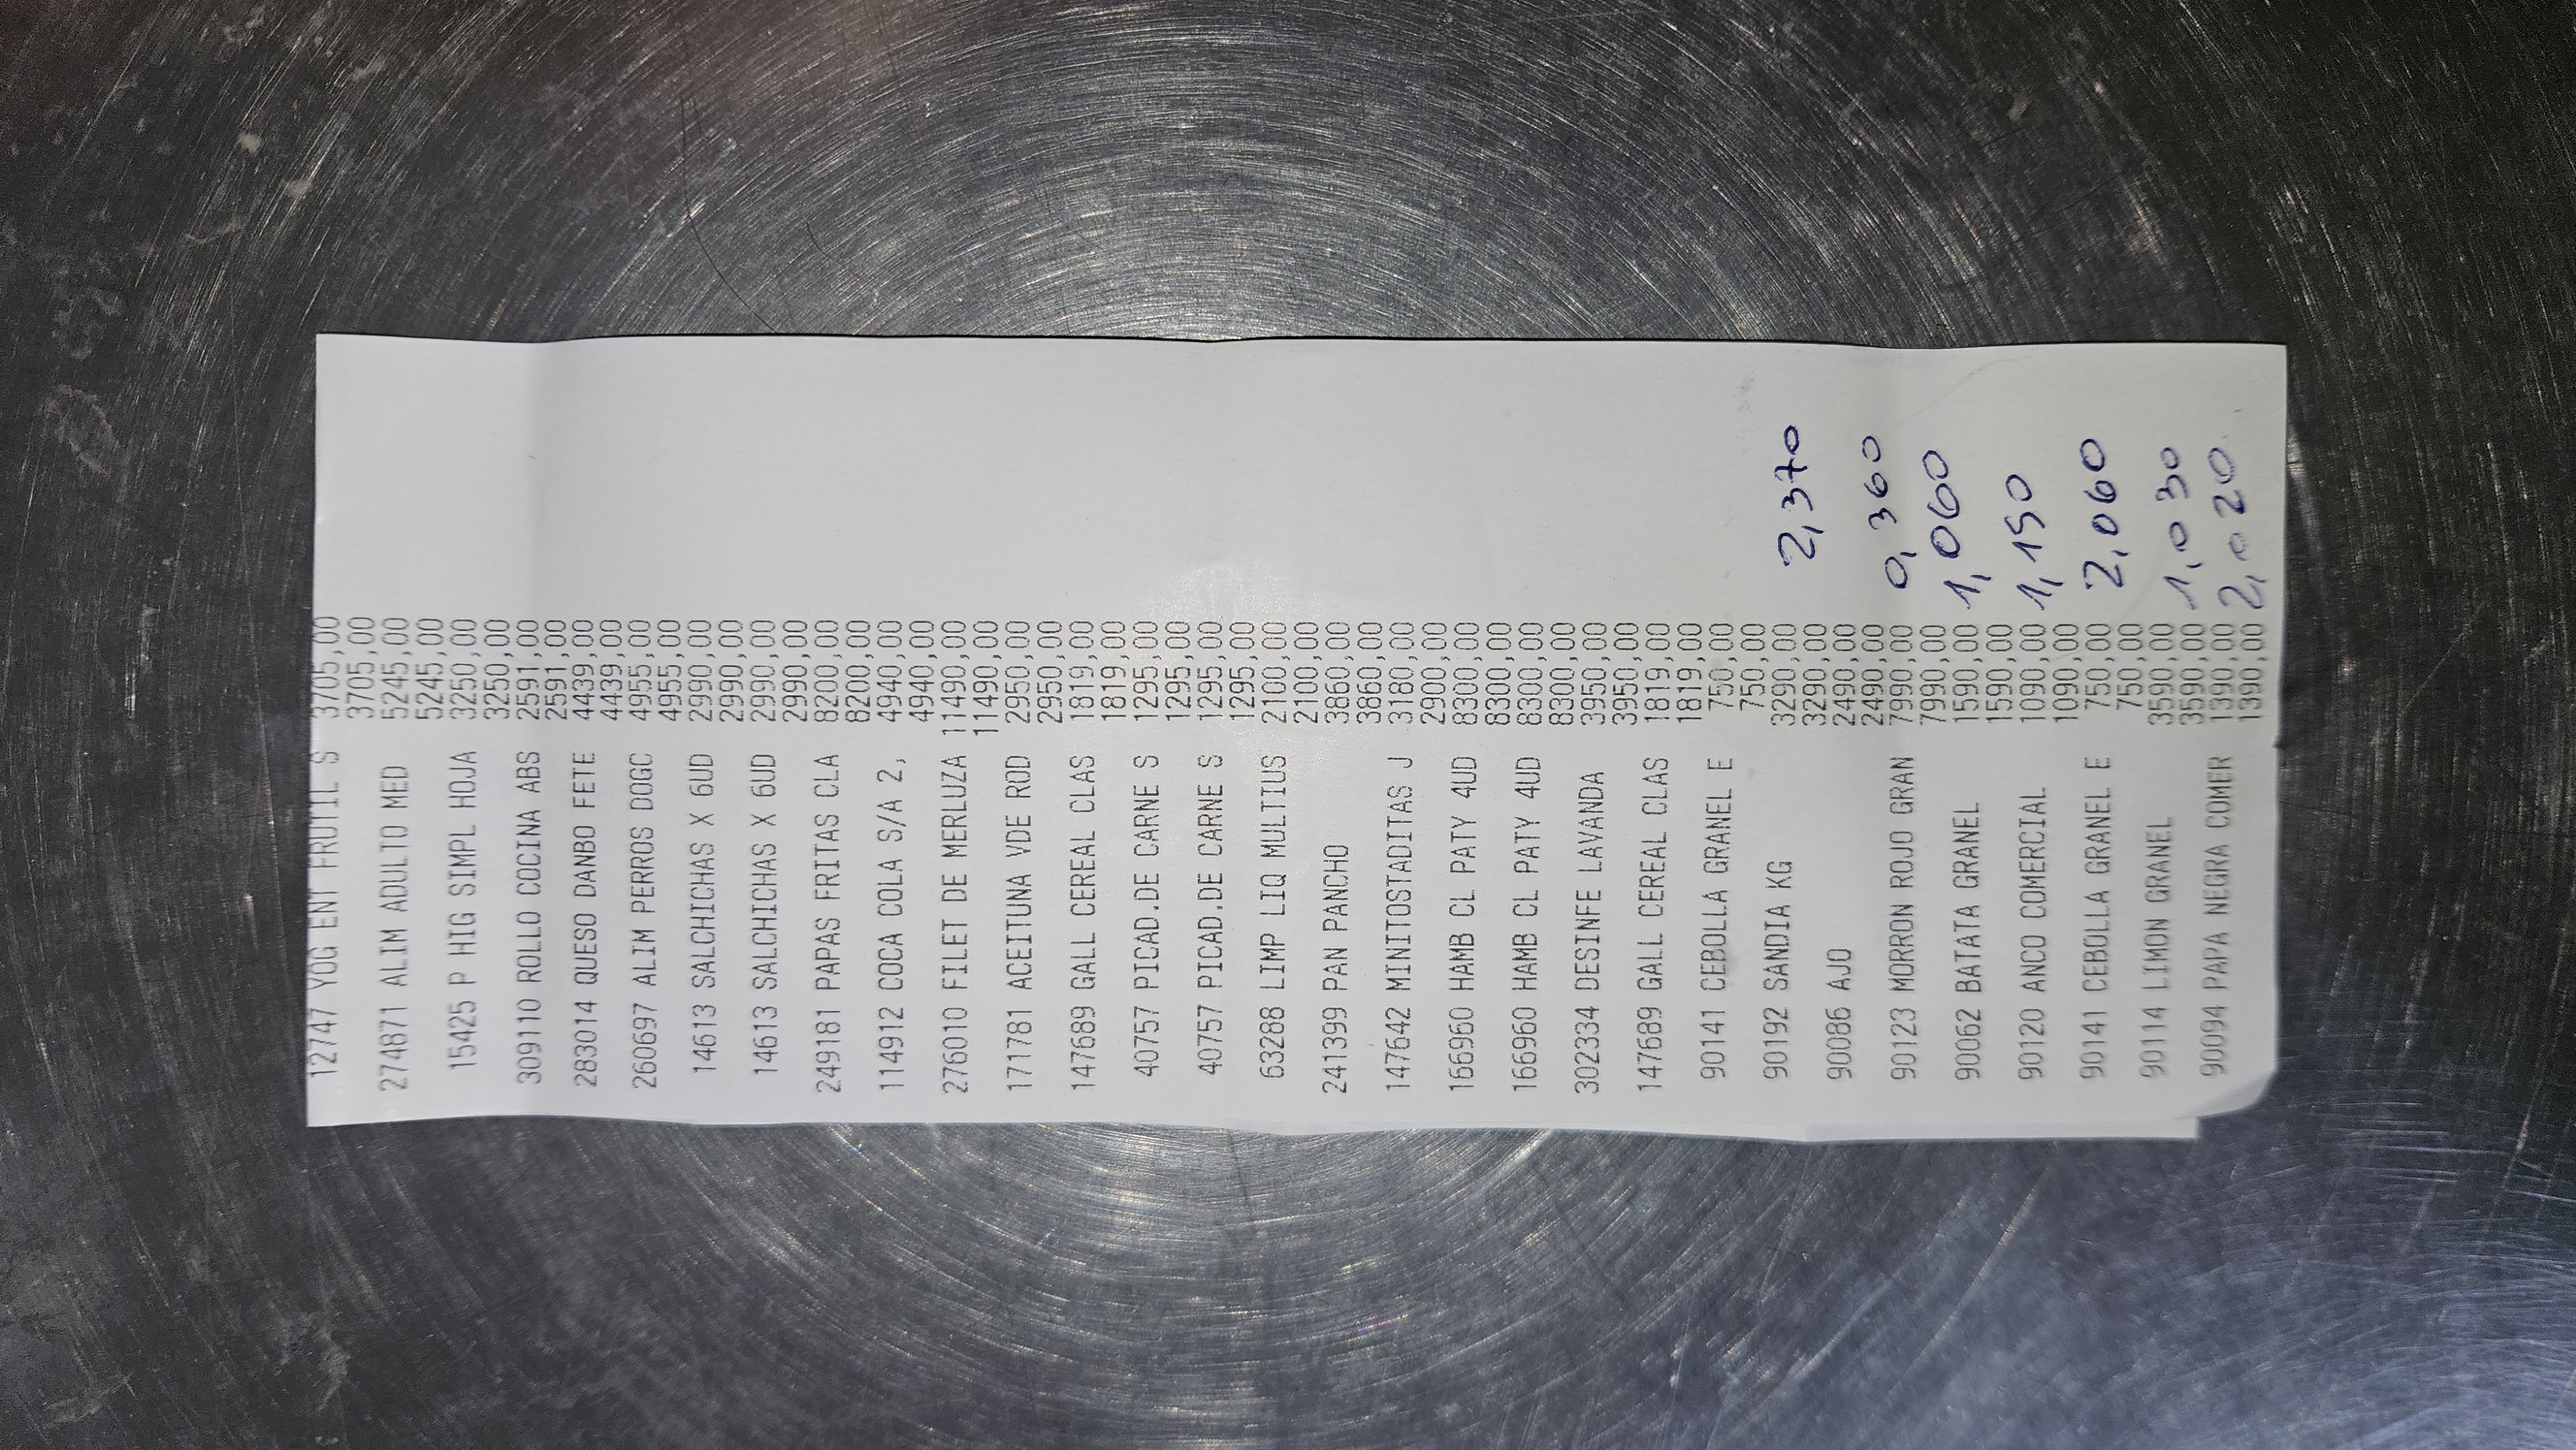 12747 YOG ENT FRUTIL S 3705,00
3705,00
274871 ALIM ADULTO MED 5245,00
5245,00
15425 P HIG SIMPL HOJA 3250,00
3250,00
309110 ROLLO COCINA ABS 2591,00
2591,00
283014 QUESO DANBO FETE 4439,00
4439,00
260697 ALIM PERROS DOGC 4955,00
4955,00
14613 SALCHICHAS X 6UD 2990,00
2990,00
14613 SALCHICHAS X 6UD 2990,00
2990,00
249181 PAPAS FRITAS CLA 8200,00
8200,00
114912 COCA COLA S/A 2, 4940,00
4940,00
276010 FILET DE MERLUZA 11490,00
11490,00
171781 ACEITUNA VDE ROD 2950,00
2950,00
147689 GALL CEREAL CLAS 1819,00
1819,00
40757 PICAD.DE CARNE S 1295,00
1295,00
40757 PICAD.DE CARNE S 1295,00
1295,00
63288 LIMP LIQ MULTIUS 2100,00
2100,00
241399 PAN PANCHO 3860,00
3860,00
147642 MINITOSTADITAS J 3180,00
2900,00
166960 HAMB CL PATY 4UD 8300,00
8300,00
166960 HAMB CL PATY 4UD 8300,00
8300,00
302334 DESINFE LAVANDA 3950,00
3950,00
147689 GALL CEREAL CLAS 1819,00
1819,00
90141 CEBOLLA GRANEL E 750,00
750,00
90192 SANDIA KG 3290,00 2,370
3290,00
90086 AJO 2490,00
2490,00 0,360
90123 MORRON ROJO GRAN 7990,00
7990,00 1,060
90062 BATATA GRANEL 1590,00
1590,00
90120 ANCO COMERCIAL 1090,00 1,150
1090,00
90141 CEBOLLA GRANEL E 750,00 2,060
750,00
90114 LIMON GRANEL 3590,00 1,030
3590,00
90094 PAPA NEGRA COMER 1390,00 2,020
1390,00